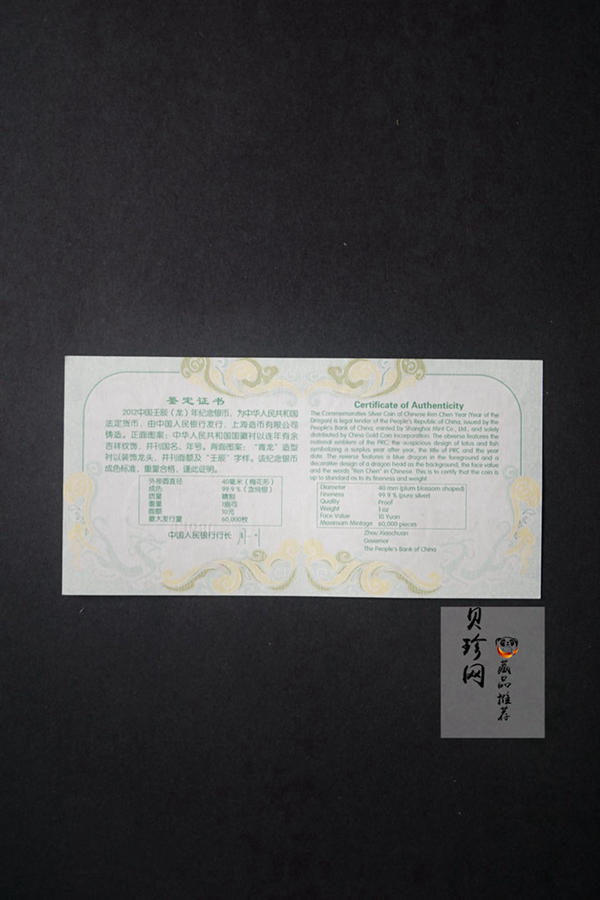 鉴定证书
2012中国壬辰（龙）年纪念银币，为中华人民共和国
法定货币，由中国人民银行发行，上海造币有限公司
铸造。正面图案：中华人民共和国国徽衬以连年有余
吉祥纹饰，并刊国名、年号。背面图案：“青龙”造型
衬以装饰龙头，并刊面额及“壬辰”字样。该纪念银币
成色标准，重量合格，谨此证明。
外接圆直径 40毫米（梅花形）
成色 99.9％（含纯银）
质量 精制
重量 1盎司
面额 10元
最大发行量 60,000枚
中国人民银行行长
Certificate of Authenticity
The Commemorative Silver Coin of Chinese Ren Chen Year (Year of the
Dragon) is legal tender of the People's Republic of China, issued by the
People's Bank of China, minted by Shanghai Mint Co., Ltd., and solely
distributed by China Gold Coin Incorporation. The obverse features the
national emblem of the PRC, the auspicious design of lotus and fish
symbolizing a surplus year after year, the title of PRC and the year
date. The reverse features a blue dragon in the foreground and a
decorative design of a dragon head as the background, the face value
and the words "Ren Chen" in Chinese. This is to certify that the coin is
up to standard as to its fineness and weight
Diameter 40 mm (plum blossom shaped)
Fineness 99.9 % (pure silver)
Quality Proof
Weight 1 oz
Face Value 10 Yuan
Maximum Mintage 60,000 pieces
Zhou Xiaochuan
Governor
The People's Bank of China
贝珍网
藏品推荐